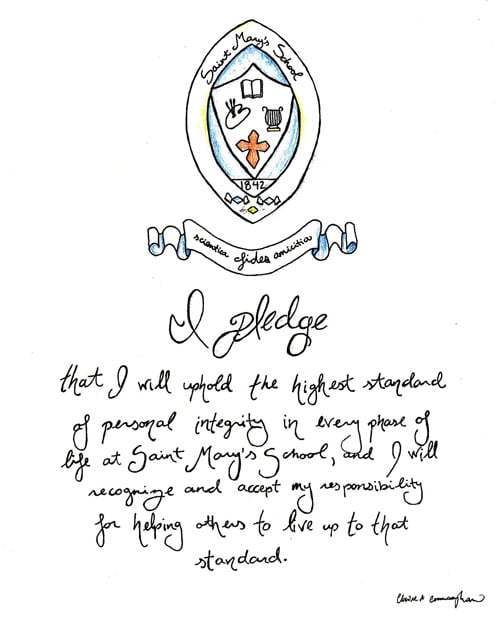 Saint Mary's School
1842
scientia fides amicitia
I pledge
that I will uphold the highest standard
of personal integrity in every phase of
life at Saint Mary's School, and I will
recognize and accept my responsibility
for helping others to live up to that
standard.